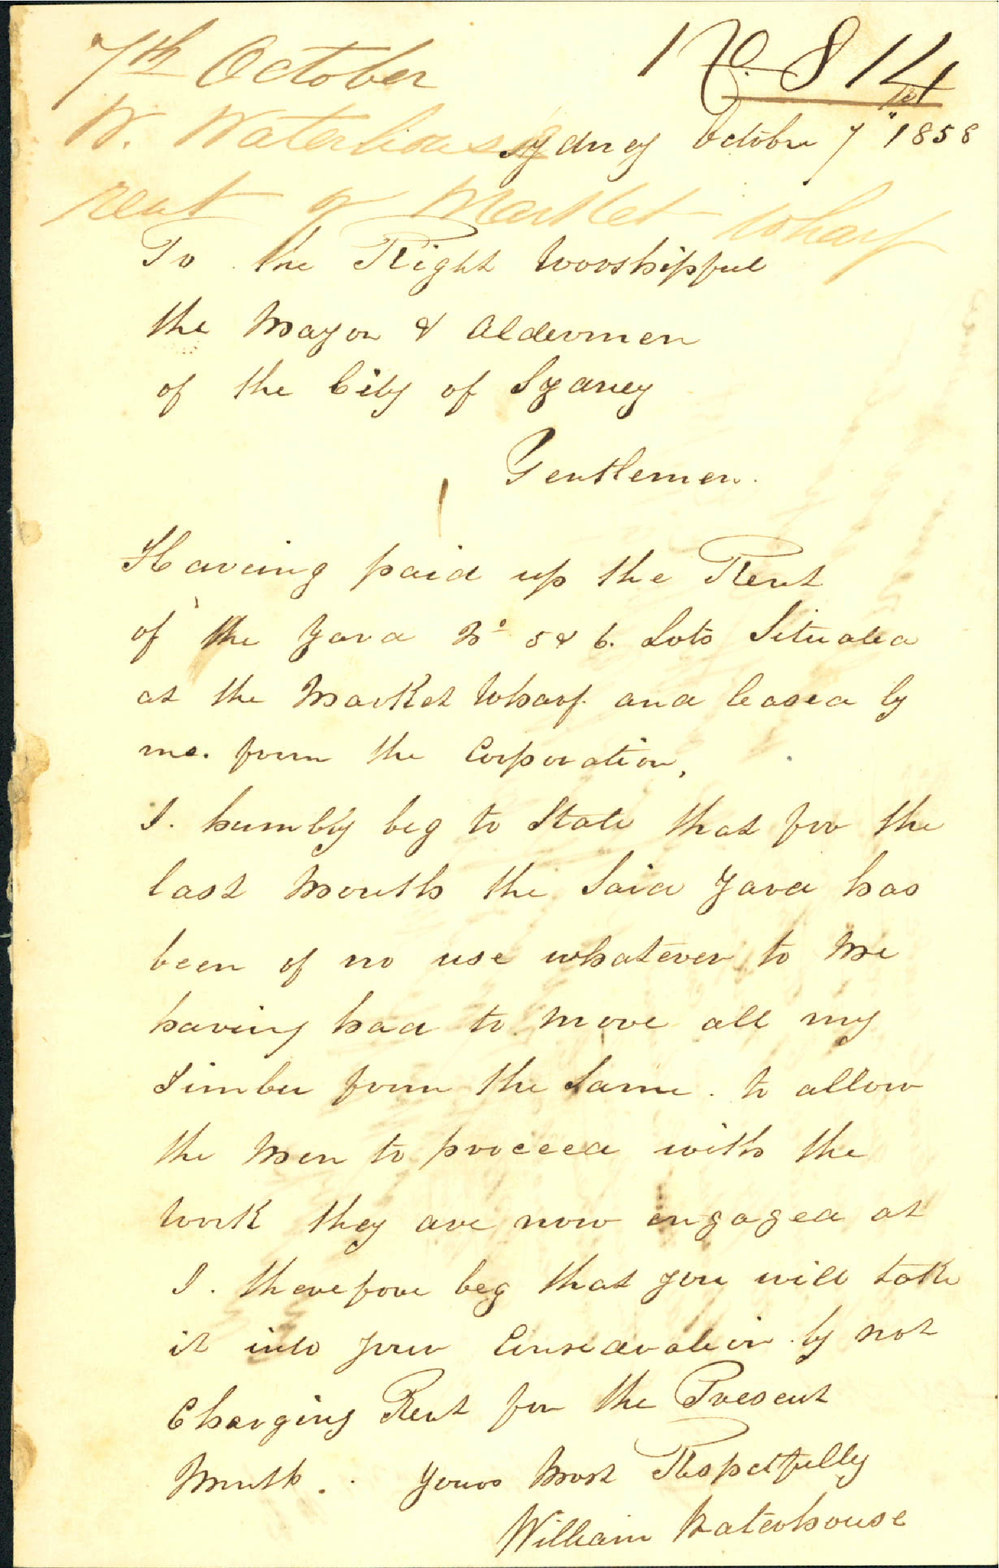 7th October
No 814
W. Waterhouse
Sydney October 7" 1858
rent of Market Wharf
To the Right Worshipful
the Mayor & Aldermen
of the City of Sydney
Gentlemen.
Haveing paid up the Rent
of the Yard No 5 & 6. Lots Situated
at the Market Wharf. and leased by
me. from the Corporation,
I. humbly beg to State that for the
last Month the Said Yard has
been of no use whatever to Me
having had to move all my
Timber from the Same. to allow
the Men to proceed with the
Work they are now engaged at
I. therefore beg that you will take
it into your Consideration by not
Charging Rent for the Present
Month. Yours Most Respectfully
William Waterhouse